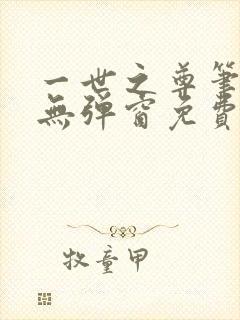 一世之尊筆
無彈窗免費
牧童甲